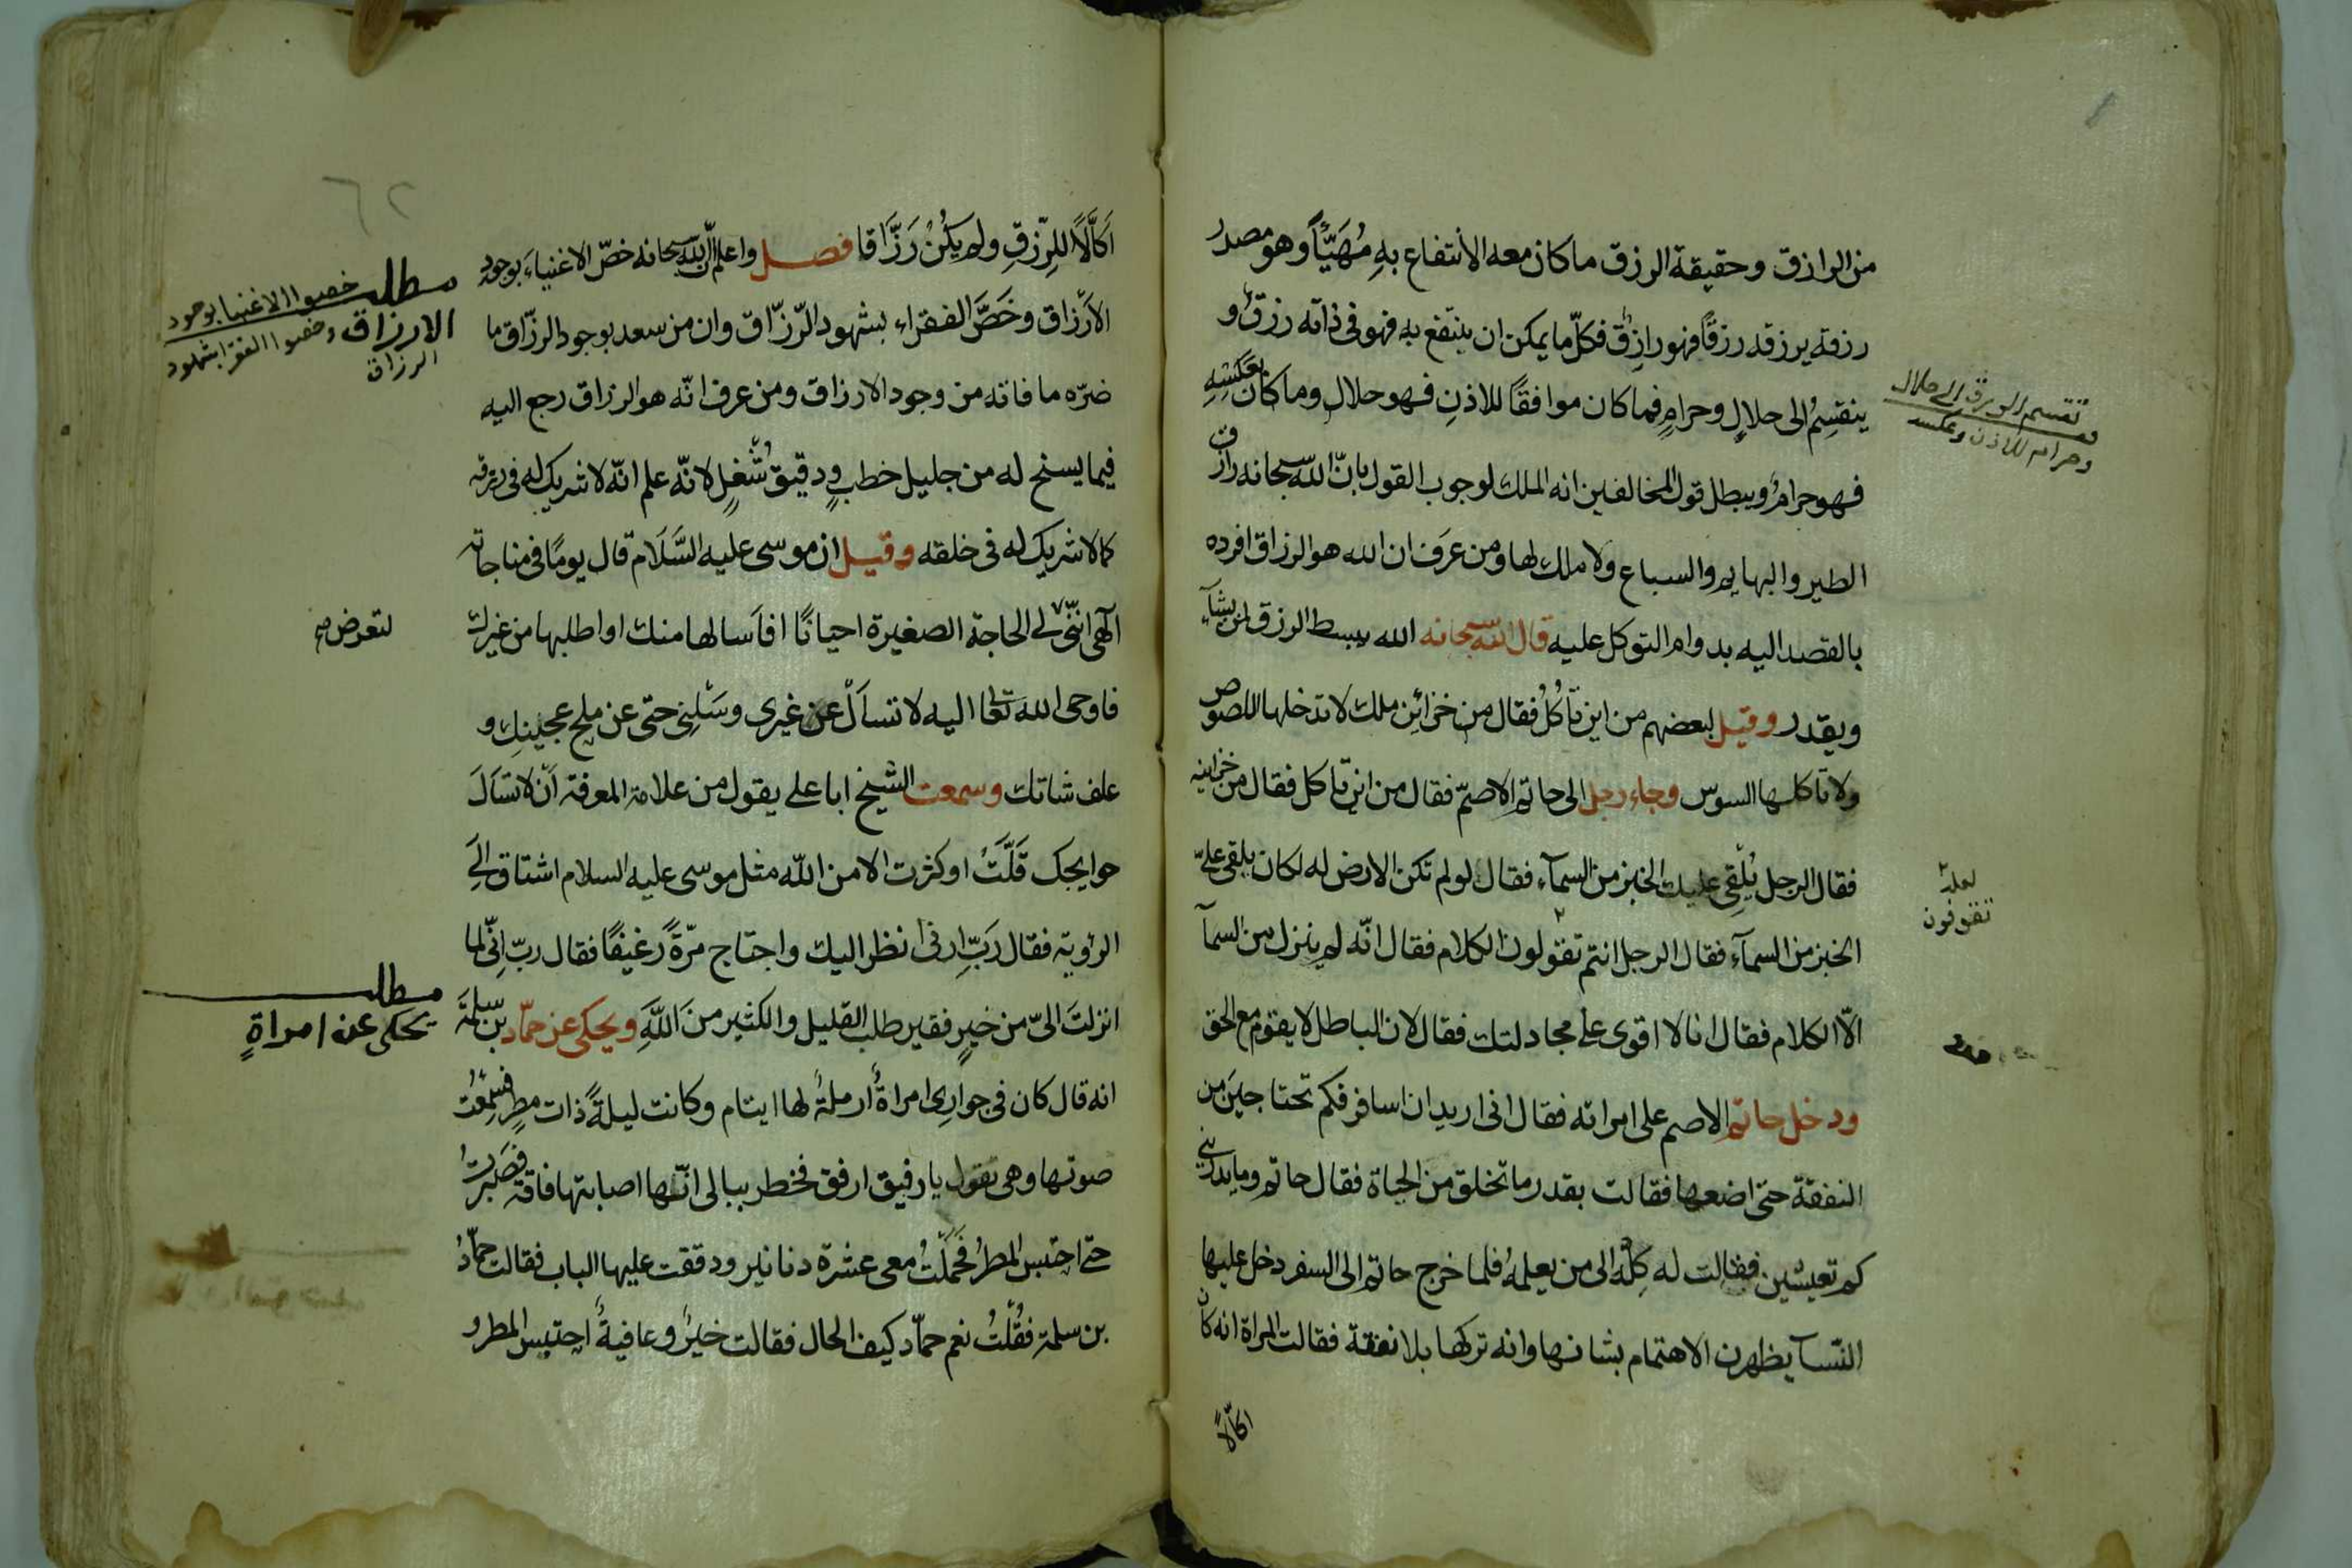 من الرازق وحقيقة الرزق ما كان معه الانتفاع به مُهَيَّأً وهو مصدر
رزقه يرزقه رزقًا فهو رازِقٌ فكلّ ما يمكن ان ينتفع به فهو فى ذاته رزقٌ و
ينقسِمُ الى حلالٍ وحرامٍ فما كان موافقًا للاذنِ فهو حلالٌ وما كان بعكسِهِ
فهو حرامٌ ويبطل قول المخالفين انه الملك لوجوب القول بانّ الله سبحانه رازق
الطير والبهايم والسباع ولا ملك لها ومن عرَف ان الله هو الرزاق افرده
بالقصد اليه بدوام التوكل عليه قال الله سبحانه الله يبسط الرزق لمن يشآء
ويقدر وقيل لبعضهم من اين تأكُلُ فقال من خزائِن ملك لا تدخلها اللصوص
ولا تاكلها السوس وجاء رجل الى حاتم الاصمّ فقال من اين تاكل فقال من خزاينه
فقال الرجل يُلْقِى عليك الخبز من السمآء فقال لو لم تكن الارض له لكان يلقى علىّ
الخبز من السمآء فقال الرجل انتم تقولون الكلام فقال انّه لم ينزل من السمآ
الّا الكلام فقال انا لا اقوى على مجادلتك فقال لان الباطل لا يقوم مع الحق
ودخل حاتم الاصم على امراته فقال انى اريد ان اسافر فكم تحتاجين من
النفقة حتى اضعها فقالت بقدر ما تخلق من الحياة فقال حاتم وما يدرينى
كم تعيشين فقالت له كِلْهُ الى من يعلمهُ فلما خرج حاتم الى السفر دخل عليها
النّسآ يظهرن الاهتمام بشانها وانه تركها بلا نفقة فقالت المراة انه كان
اكّالًا
تقسم الرزق الى حلال
وحرام للاذن وعكسه
لعله
تقوفون
اَكَّالًا للرِّزقِ ولم يكُنْ رَزَّاقا فصل واعلم انّ الله سبحانه خصّ الاغنياءَ بوجود
الاَرْزاق وخَصَّ الفقراء بشهود الرّزّاق وان من سعد بوجود الرزّاق ما
ضرّه ما فاته من وجود الارزاق ومن عرف انّه هو الرزاق رجع اليه
فيما يسنح له من جليل خطبٍ ودقيق شُغْلٍ لانّه علم انّه لا شريك له فى رزقه
كما لا شريك له فى خلقه وقيل ان موسى عليه السَّلَام قال يومًا فى مناجاته
آلهى انّنى لى الحاجة الصغيرة احيانًا افاَسالها منك او اطلبها من غيرك
فاوحى الله تعالى اليه لا تسأَلْ عن غيرى وسَلْنِى حتى عن ملح عجينك و
علف شاتك وسمعت الشيخ ابا على يقول من علامة المعرفة اَنْ لا تسَالَ
حوايجك قَلَّتْ او كثرت الا من الله مثل موسى عليه السلام اشتاق الَى
الرؤية فقال رَبّ ارنى انظر اليك واحتاج مرّةً رغيفًا فقال ربّ اِنّى لما
انزلتَ الىّ من خيرٍ فقير طلب القليل والكثير منَ اللهِ ويحكى عن حمّاد بن سلمة
انه قال كان فى جوارى امراةٌ ارملةٌ لها ايتام وكانت ليلةً ذات مطرٍ فسَمِعْتُ
صوتها وهى تقول يا رفيق ارفق فخطر ببالى انّها اصابتها فاقة فصَبرتُ
حتى احتبس المطرُ فحَمَلْتُ معى عشرة دنانير ودققت عليها الباب فقالت حمّادُ
بن سلمة فقُلْتُ نعم حمّاد كيف الحال فقالت خيرٌ وعافيةٌ احتبس المطر و
٦٢
مطلب خصوا الاغنيا بوجود
الارزاق وخصوا الفقرا بشهود
الرزاق
لتعرض
مطلب
يحكى عن امراةٍ